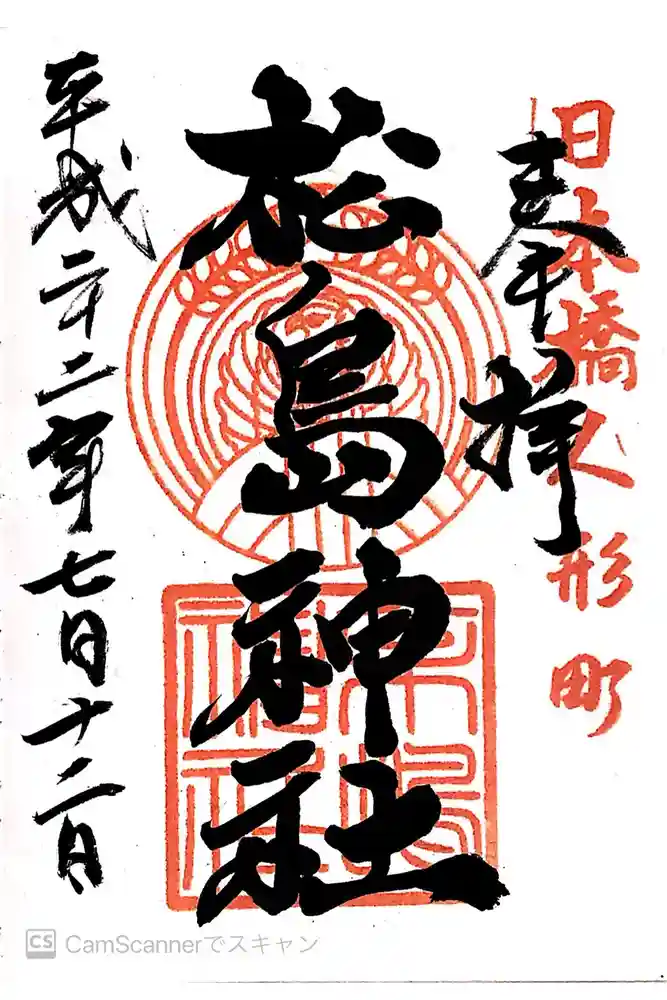 日本橋人形町
奉拝
松島神社
平成二十二年七月十二日
CS CamScannerでスキャン